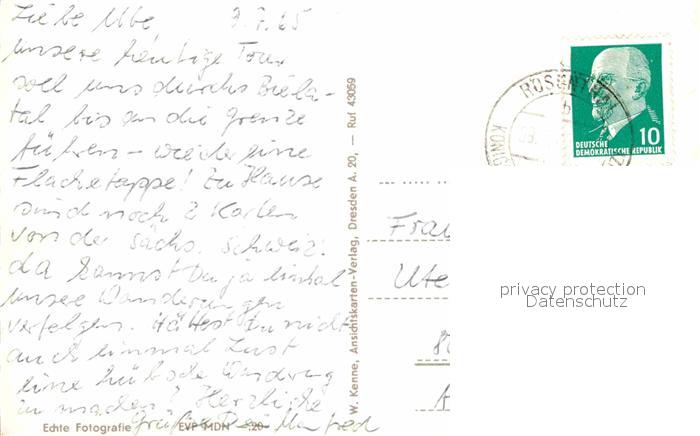 Liebe Ute 9.7.65
unsere heutige Tour
soll uns durchs Biela-
tal bis an die Grenze
führen – wieder eine
Flachetappe! Zu Hause
sind noch 2 Karten
von der sächs. Schweiz!
da kannst Du ja einmal
unsere Wanderungen
verfolgen. Hättest Du nicht
auch einmal Lust
eine hübsche Wandrung
zu machen? Herzliche
Grüße Dein Manfred
Echte Fotografie EVP MDN -.20
W. Kenne, Ansichtskarten-Verlag, Dresden A. 20, — Ruf 43059
ROSENTHAL
KÖNIG
b
10
DEUTSCHE
DEMOKRATISCHE REPUBLIK
Frau
Ute
privacy protection
Datenschutz